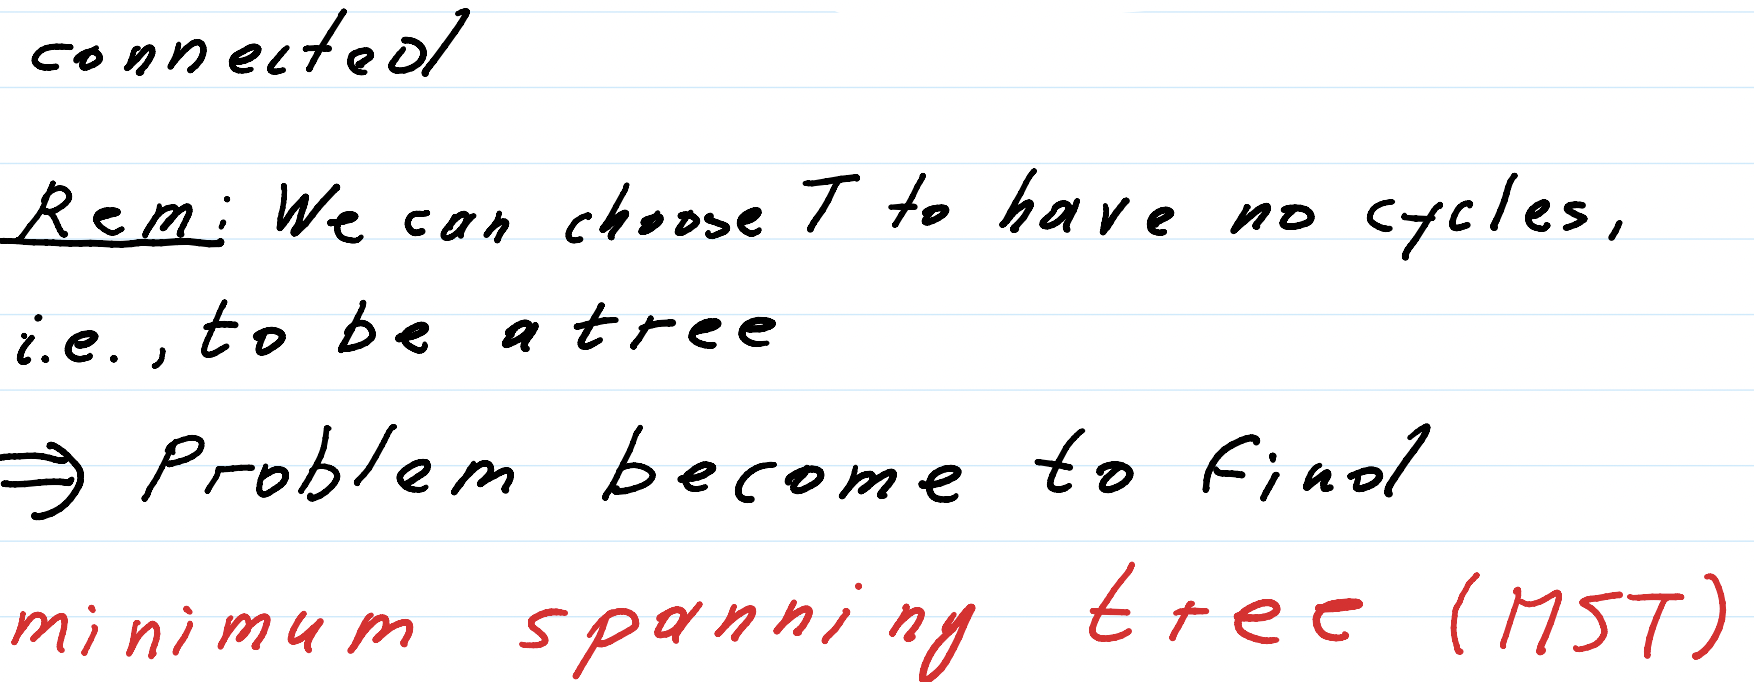 connected
Rem: We can choose T to have no cycles,
i.e., to be a tree
⇒ Problem become to find
minimum spanning tree (MST)